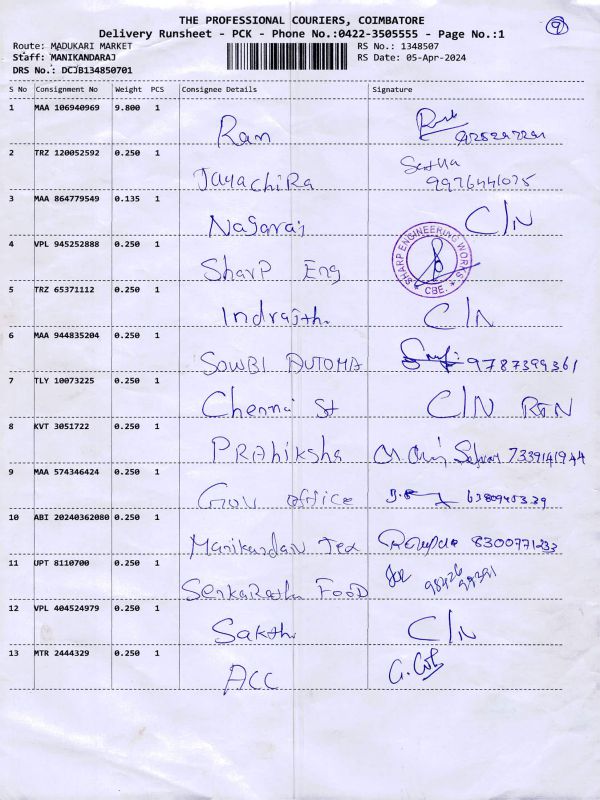 THE PROFESSIONAL COURIERS, COIMBATORE
9
Delivery Runsheet - PCK - Phone No.:0422-3505555 - Page No.:1
Route: MADUKARI MARKET RS No.: 1348507
Staff: MANIKANDARAJ RS Date: 05-Apr-2024
DRS No.: DCJB134850701
S No Consignment No Weight PCS Consignee Details Signature
1 MAA 106940969 9.800 1 Ram
2 TRZ 120052592 0.250 1 JayachiRa 9976441075
3 MAA 864779549 0.135 1 Nagaraj C/N
4 VPL 945252888 0.250 1 Sharp Eng SHARP ENGINEERING WORKS * CBE. *
5 TRZ 65371112 0.250 1 Indrajth C/N
6 MAA 944835204 0.250 1 SOWBI AUTOMA 9787399361
7 TLY 10073225 0.250 1 Chennai St C/N RTN
8 KVT 3051722 0.250 1 PRAhiksha 7339141944
9 MAA 574346424 0.250 1 Gov office
10 ABI 20240362080 0.250 1 Manikandan Tex 8300771233
11 UPT 8110700 0.250 1 FOOD
12 VPL 404524979 0.250 1 Sakthi C/N
13 MTR 2444329 0.250 1 ACC